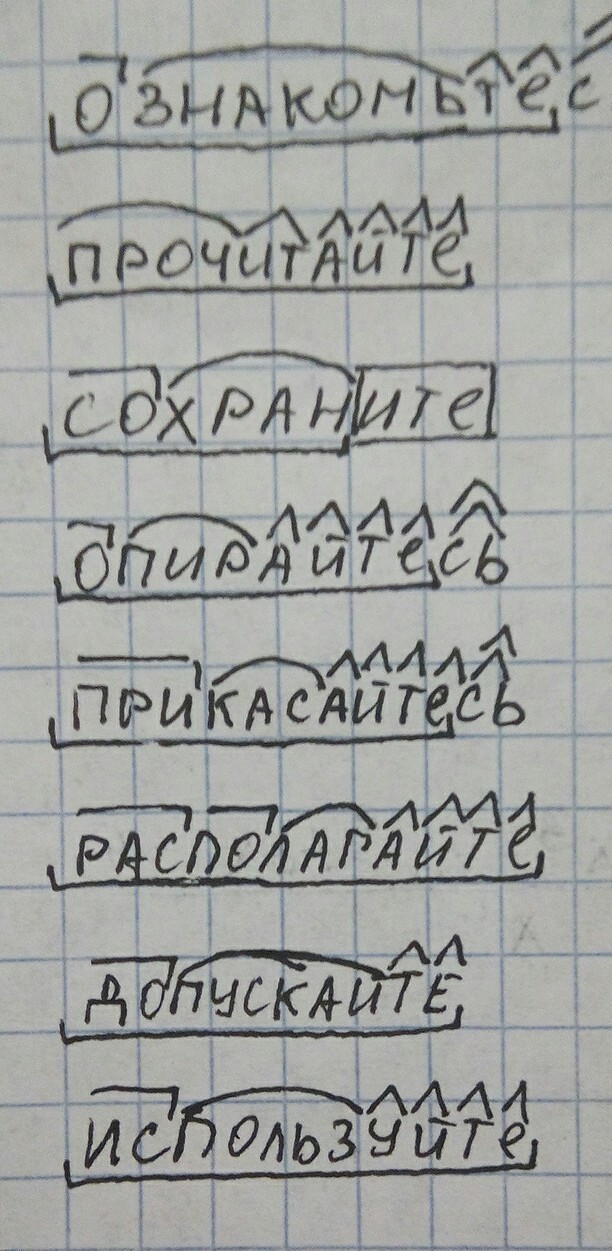 ОЗНАКОМЬТЕС
ПРОЧИТАЙТЕ
СОХРАНИТЕ
ОПИРАЙТЕСЬ
ПРИКАСАЙТЕСЬ
РАСПОЛАГАЙТЕ
ДОПУСКАЙТЕ
ИСПОЛЬЗУЙТЕ